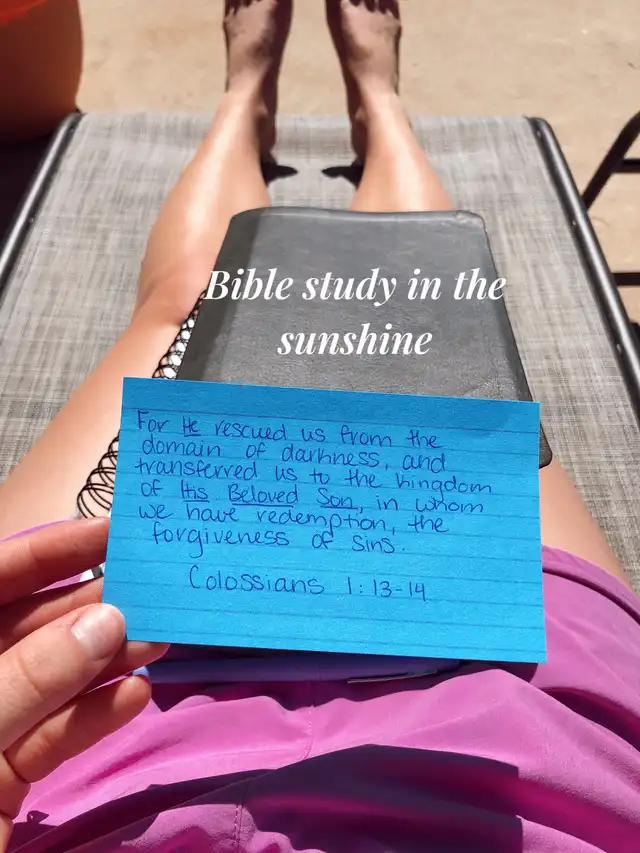 Bible study in the
sunshine
For He rescued us from the
domain of darkness, and
transferred us to the kingdom
of His Beloved Son, in whom
we have redemption, the
forgiveness of sins.
Colossians 1:13-14